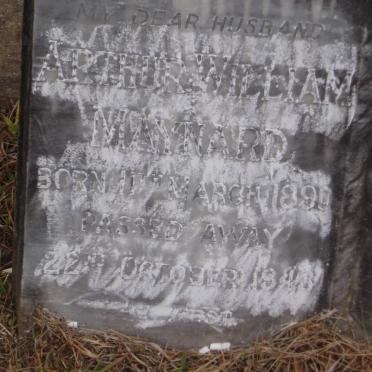 MY DEAR HUSBAND
ARTHUR WILLIAM
MAYNARD
BORN 11TH MARCH 1890
PASSED AWAY
22ND OCTOBER 1948
REST